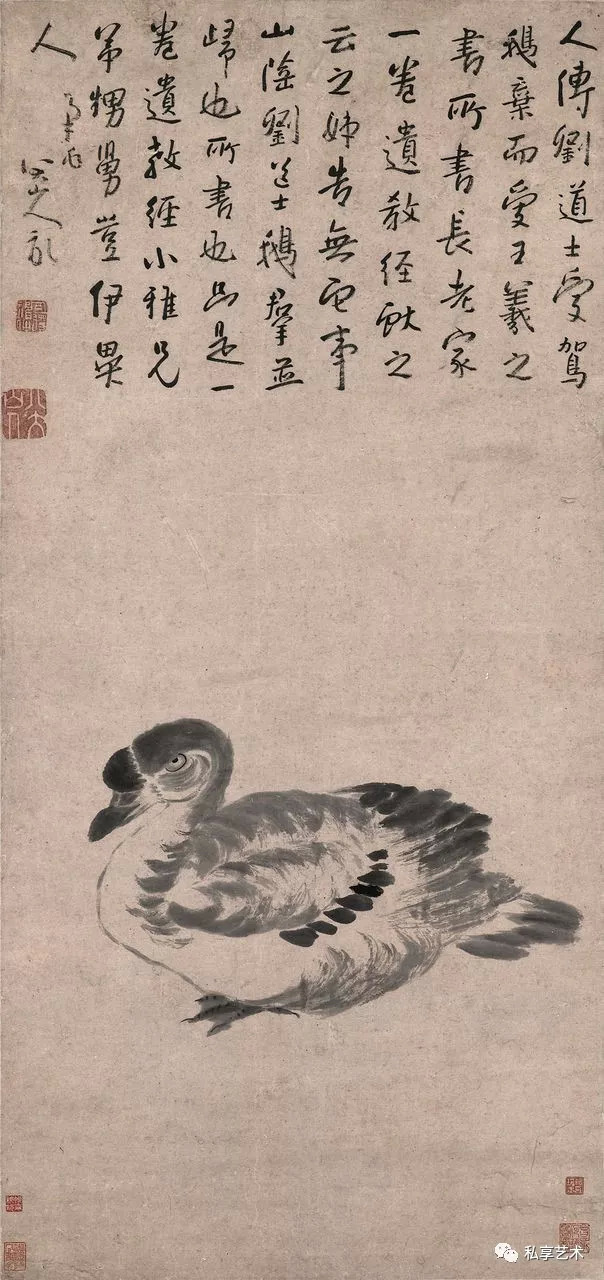 人傳劉道士愛駕
鵝棄而愛王羲之
書所書長老家
一卷遺教經獻之
云之姊告無它事
山陰劉道士鵝群並
歸也所書也只是一
卷遺教經小雅兄
弟甥舅豈伊異
人
八山人
私享艺术